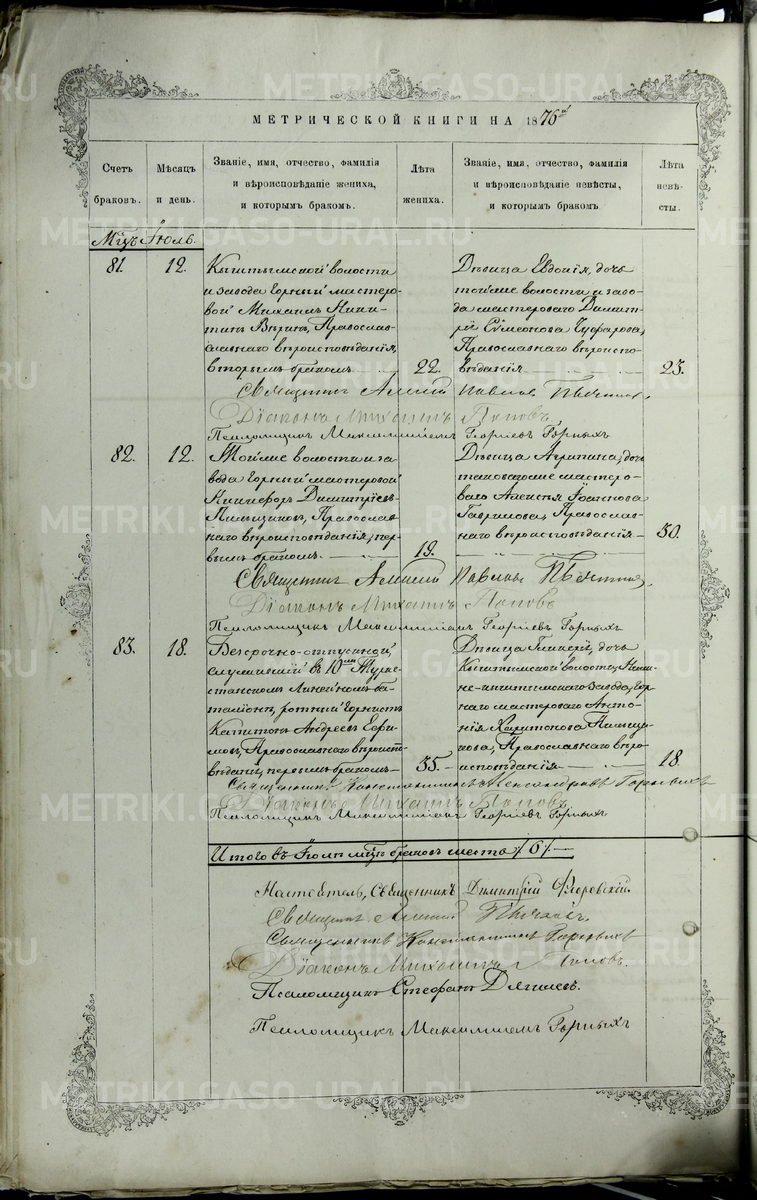 МЕТРИЧЕСКОЙ КНИГИ НА 1876й
Счетъ браковъ.
Мѣсяцъ и день.
Званіе, имя, отчество, фамилія и вѣроисповѣданіе жениха, и которымъ бракомъ.
Лѣта жениха.
Званіе, имя, отчество, фамилія и вѣроисповѣданіе невѣсты, и которымъ бракомъ
Лѣта невѣсты.
Мцъ Іюль.
81. 12.
Кыштымской волости
и завода Горный мастеро
вой Михаилъ Ники
тинъ Православ
наго вѣроисповѣданія,
вторымъ бракомъ 22.
Дѣвица Евдокія, дочь
той же волости и заво
да мастероваго Димит
рія Симеонова
Православнаго вѣроиспо
вѣданія 23.
Священникъ Алексій Павловъ
Діаконъ Михаилъ Поповъ.
Псаломщикъ Максимиліанъ Георгіевъ Горныхъ
82. 12.
Той же волости и за
вода Горный мастеровой
Никифоръ Димитріевъ
Пильщиковъ, Православ
наго вѣроисповѣданія, пер
вымъ бракомъ 19.
Дѣвица Агрипина, дочь
таковаго же мастеро
ваго Алексѣя Іоаннова
Гаврилова, Православ
наго вѣроисповѣданія
Священникъ Алексій Павловъ
Діаконъ Михаилъ Поповъ
Псаломщикъ Максимиліанъ Георгіевъ Горныхъ
83. 18.
Безсрочно-отпускной,
служившій въ 10мъ Турке
станскомъ Линейномъ ба
таліонѣ, ротный Горнистъ
Капитонъ Андреевъ Ефи
мовъ, Православнаго вѣроиспо
вѣданія, первымъ бракомъ 35.
Дѣвица Гликерія, дочь
Кыштымской волости, Ниж
не-кыштымскаго Завода, Гор
наго мастероваго Анто
нія Харитонова Пильщи
кова, Православнаго вѣро
исповѣданія 18.
Священникъ Константинъ Александровъ Горныхъ
Діаконъ Михаилъ Поповъ,
Псаломщикъ Максимиліанъ Георгіевъ Горныхъ
Итого въ Іюлѣ мцѣ браковъ шесть /6/
Настоятель, Священникъ Димитрій
Священникъ Алексій
Священникъ Константинъ Горныхъ
Діаконъ Михаилъ Поповъ.
Псаломщикъ Стефанъ Дягилевъ.
Псаломщикъ Максимиліанъ Горныхъ
METRIKI.GASO-URAL.RU